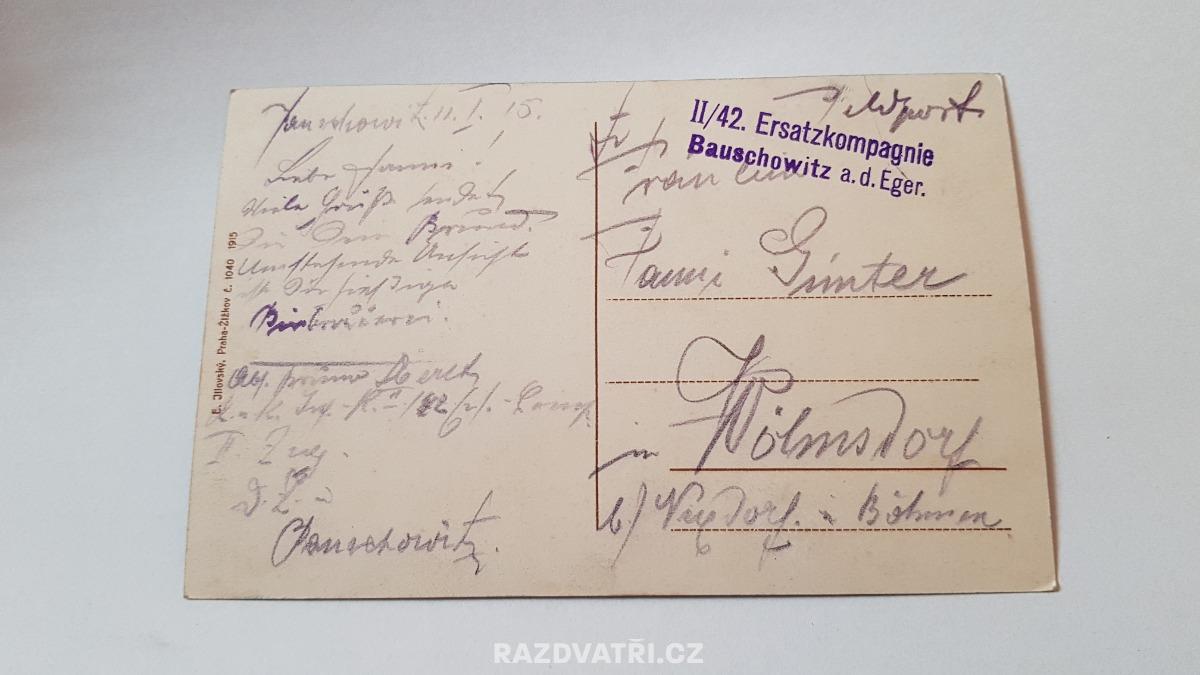 Bauschowitz 11. I. 15.
Liebe Fanni!
Viele Grüße sendet
Dir Dein
Umstehende Ansicht
ist die hiesige
Bierbrauerei.
Abs.
k. u. k. Inf. R. 42
II. Zug.
Bauschowitz.
E. Jilovský, Praha-Žižkov č. 1040 1915
Feldpost
II/42. Ersatzkompagnie
Bauschowitz a. d. Eger.
Fräulein
Fanni Günter
in Wölmsdorf
b/ Nixdorf. i Böhmen
RAZDVATŘI.CZ